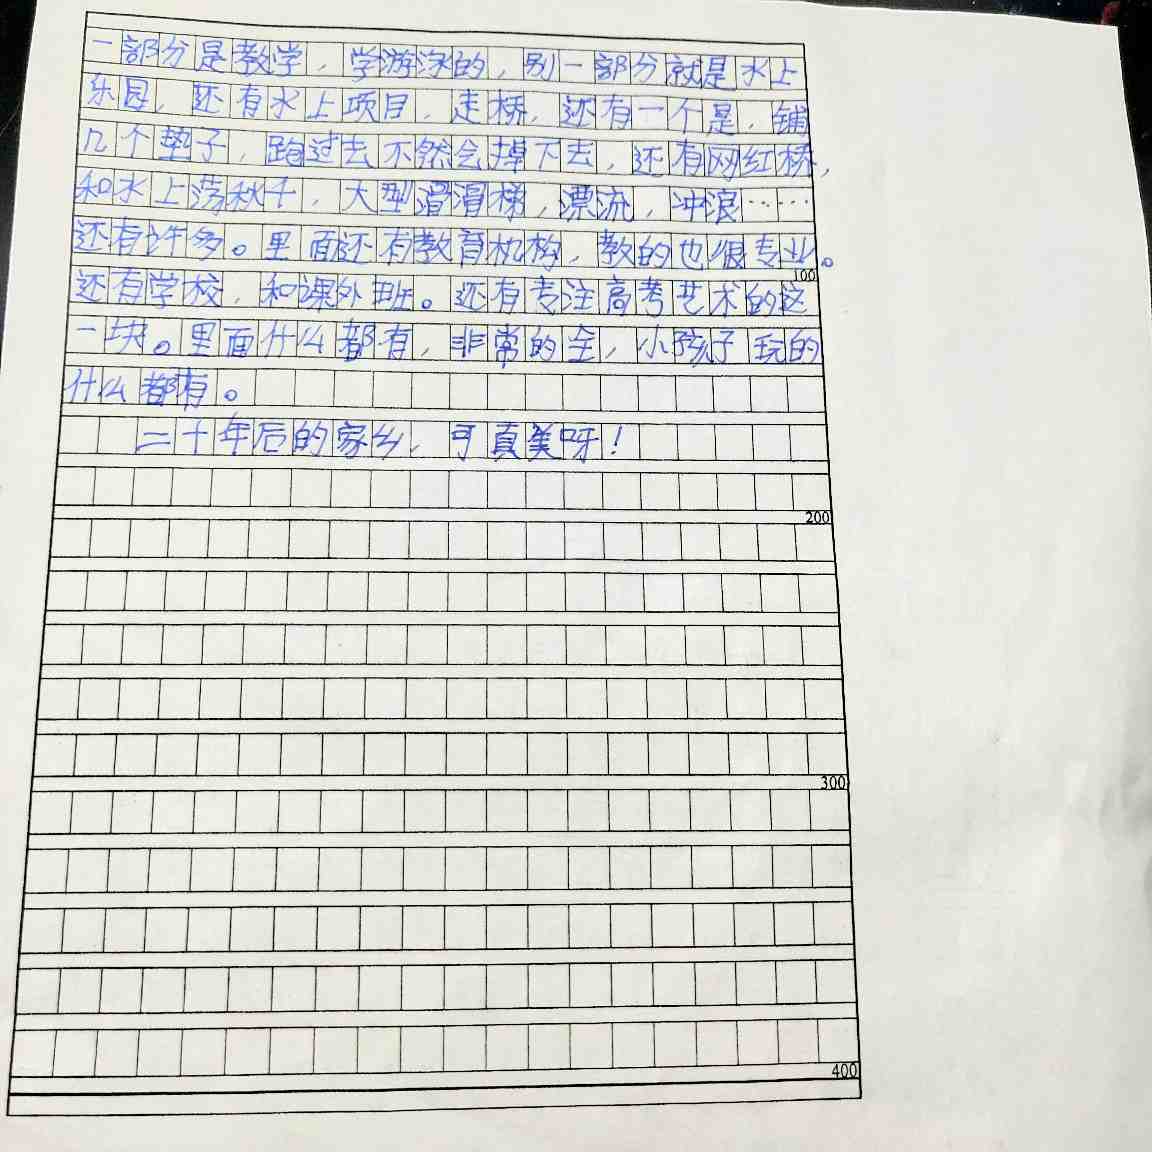 一部分是教学，学游泳的，别一部分就是水上
乐园，还有水上项目，走桥，还有一个是，铺
几个垫子，跑过去不然会掉下去，还有网红桥，
和水上荡秋千，大型滑滑梯，漂流，冲浪……
还有许多。里面还有教育机构，教的也很专业。
100
还有学校，和课外班。还有专注高考艺术的这
一块。里面什么都有，非常的全，小孩子玩的
什么都有。
二十年后的家乡，可真美呀！
200
300
400